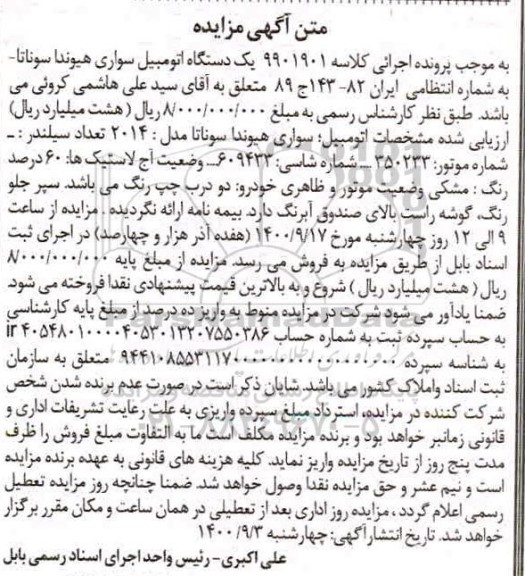 متن آگهی مزایده
به موجب پرونده اجرائی کلاسه ۹۹۰۱۹۰۱ یک دستگاه اتومبیل سواری هیوندا سوناتا-
به شماره انتظامی ایران ۸۲- ۱۴۳ج ۸۹ متعلق به آقای سید علی هاشمی کروئی می
باشد. طبق نظر کارشناس رسمی به مبلغ ۸/۰۰۰/۰۰۰/۰۰۰ ریال (هشت میلیارد ریال)
ارزیابی شده مشخصات اتومبیل؛ سواری هیوندا سوناتا مدل : ۲۰۱۴ تعداد سیلندر : ـ
شماره موتور: ۳۵۰۲۳۳ ـ شماره شاسی: ۶۰۹۴۳۳ـ وضعیت آج لاستیک ها: ۶۰ درصد
رنگ : مشکی وضعیت موتور و ظاهری خودرو: دو درب چپ رنگ می باشد. سپر جلو
رنگ، گوشه راست بالای صندوق آبرنگ دارد. بیمه نامه ارائه نگردیده . مزایده از ساعت
۹ الی ۱۲ روز چهارشنبه مورخ ۱۴۰۰/۹/۱۷ (هفده آذر هزار و چهارصد) در اجرای ثبت
اسناد بابل از طریق مزایده به فروش می رسد. مزایده از مبلغ پایه ۸/۰۰۰/۰۰۰/۰۰۰
ریال ( هشت میلیارد ریال ) شروع و به بالاترین قیمت پیشنهادی نقدا فروخته می شود.
ضمنا یادآور می شود شرکت در مزایده منوط به واریز ده درصد از مبلغ پایه کارشناسی
به حساب سپرده ثبت به شماره حساب ir ۴۰۵۴۸۰۱۰۰۰۰۴۰۵۳۰۱۳۲۰۷۵۵۰۳۸۶
به شناسه سپرده متعلق به سازمان
ثبت اسناد واملاک کشور می باشد. شایان ذکر است در صورت عدم برنده شدن شخص
شرکت کننده در مزایده، استرداد مبلغ سپرده واریزی به علت رعایت تشریفات اداری و
قانونی زمانبر خواهد بود و برنده مزایده مکلف است ما به التفاوت مبلغ فروش را ظرف
مدت پنج روز از تاریخ مزایده واریز نماید. کلیه هزینه های قانونی به عهده برنده مزایده
است و نیم عشر و حق مزایده نقدا وصول خواهد شد. ضمنا چنانچه روز مزایده تعطیل
رسمی اعلام گردد ، مزایده روز اداری بعد از تعطیلی در همان ساعت و مکان مقرر برگزار
خواهد شد. تاریخ انتشار آگهی: چهارشنبه ۱۴۰۰/۹/۳
علی اکبری- رئیس واحد اجرای اسناد رسمی بابل